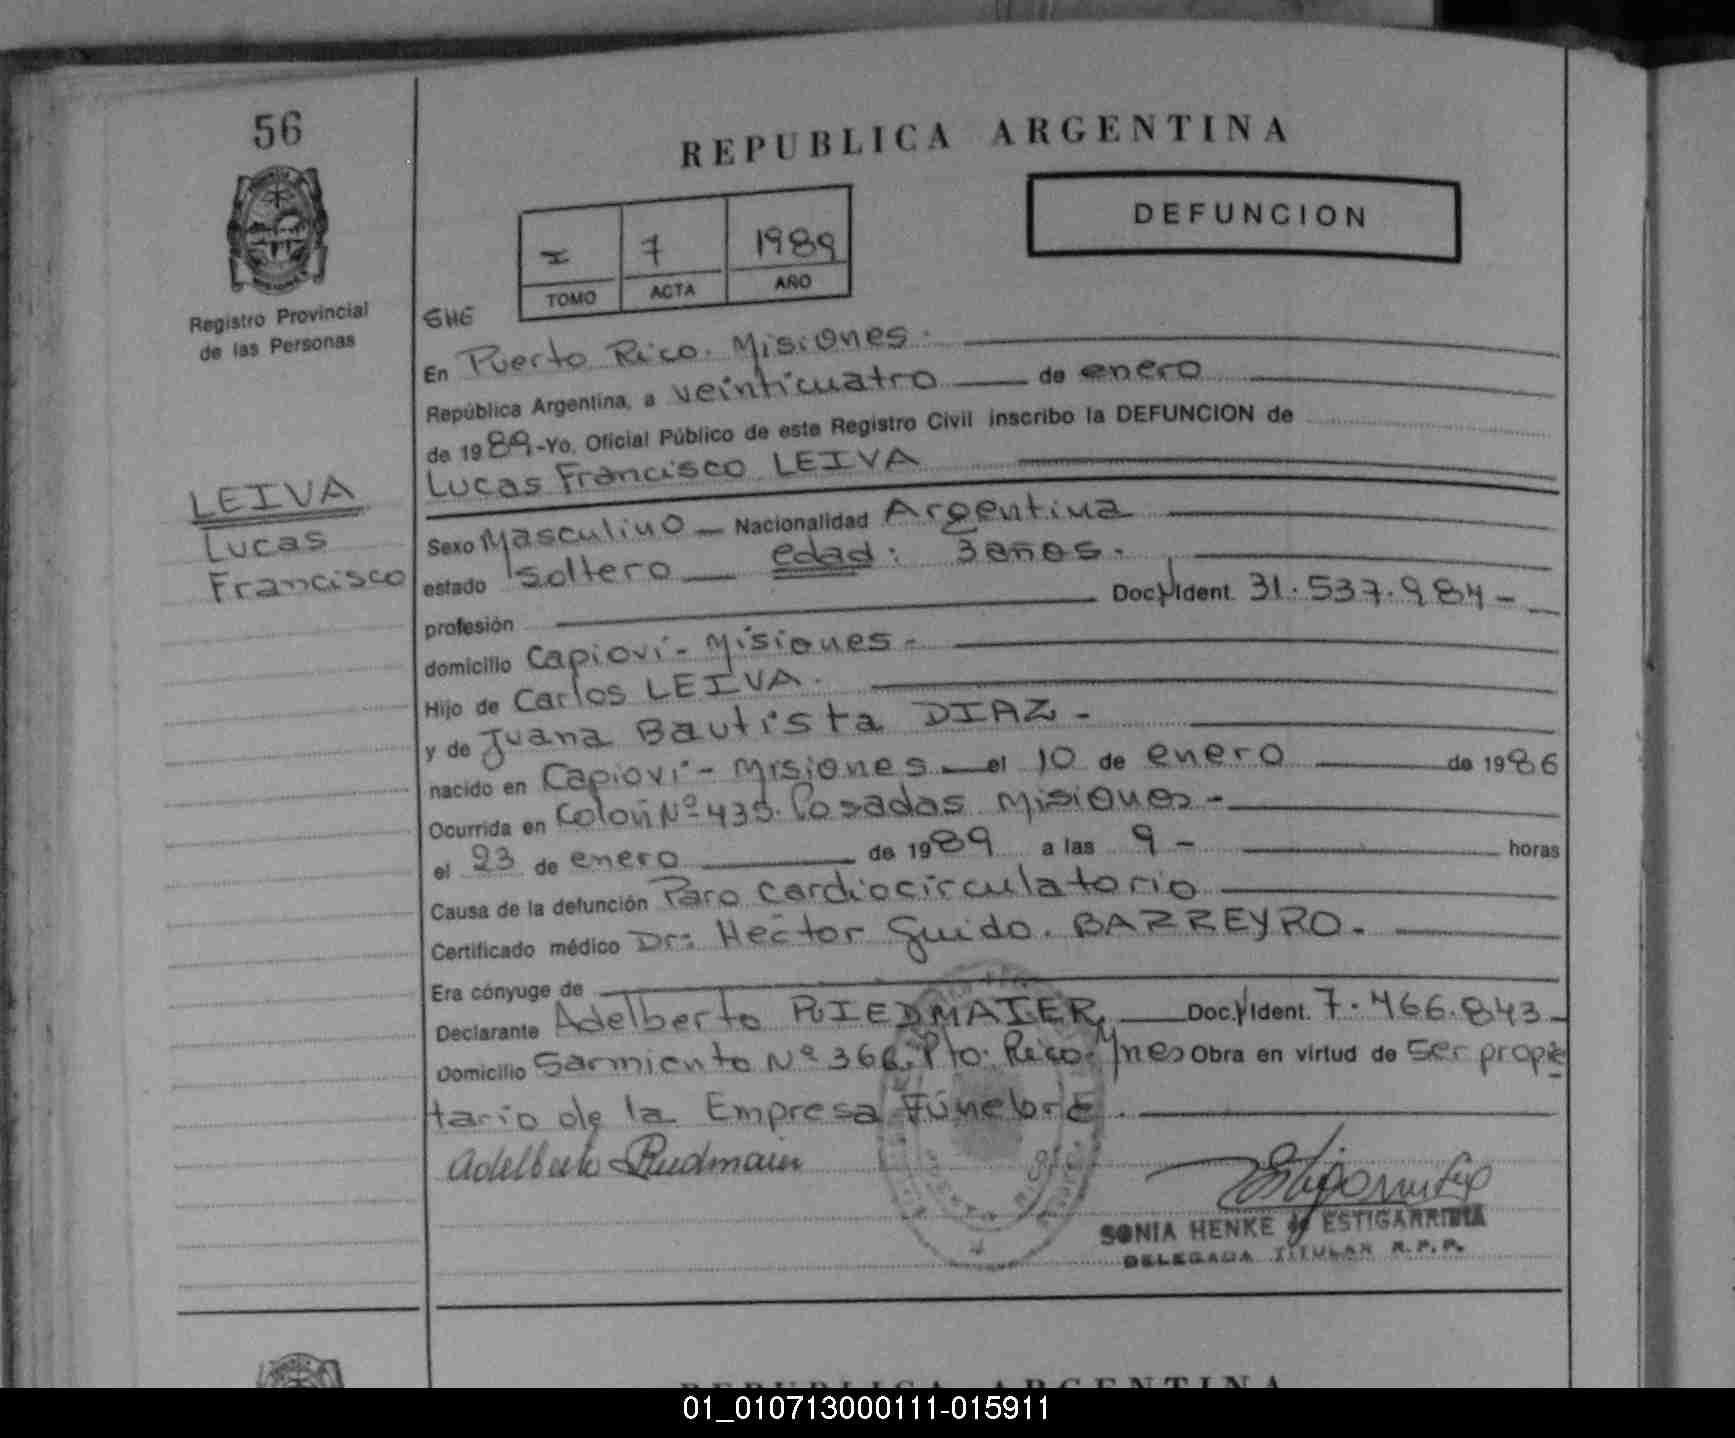 56
REPUBLICA ARGENTINA
DEFUNCION
I 7 1989
TOMO ACTA AÑO
Registro Provincial
de las Personas
SHE
En Puerto Rico. Misiones.
República Argentina, a veinticuatro de enero
de 1989 -Yo, Oficial Público de este Registro Civil inscribo la DEFUNCION de
Lucas Francisco LEIVA
LEIVA
Lucas
Francisco
Sexo Masculino Nacionalidad Argentina
estado soltero edad: 3 años.
profesión Doc. Ident. 31.537.984-
domicilio Capioví - Misiones -
Hijo de Carlos LEIVA.
y de Juana Bautista DIAZ -
nacido en Capioví - Misiones el 10 de enero de 1986
Ocurrida en Colón Nº 435. Posadas Misiones -
el 23 de enero de 1989 a las 9 - horas
Causa de la defunción Paro cardiocirculatorio
Certificado médico Dr: Hector Guido. BARREYRO.
Era cónyuge de
Declarante Adelberto RIEDMAIER, Doc. Ident. 7.466.843-
Domicilio Sarmiento Nº 366. Pto. Rico. Mnes Obra en virtud de ser propie
tario de la Empresa Fúnebre.
Adelberto Riedmaier
SONIA HENKE de ESTIGARRIBIA
DELEGADA TITULAR R.P.P.
REPUBLICA ARGENTINA
01_010713000111-015911